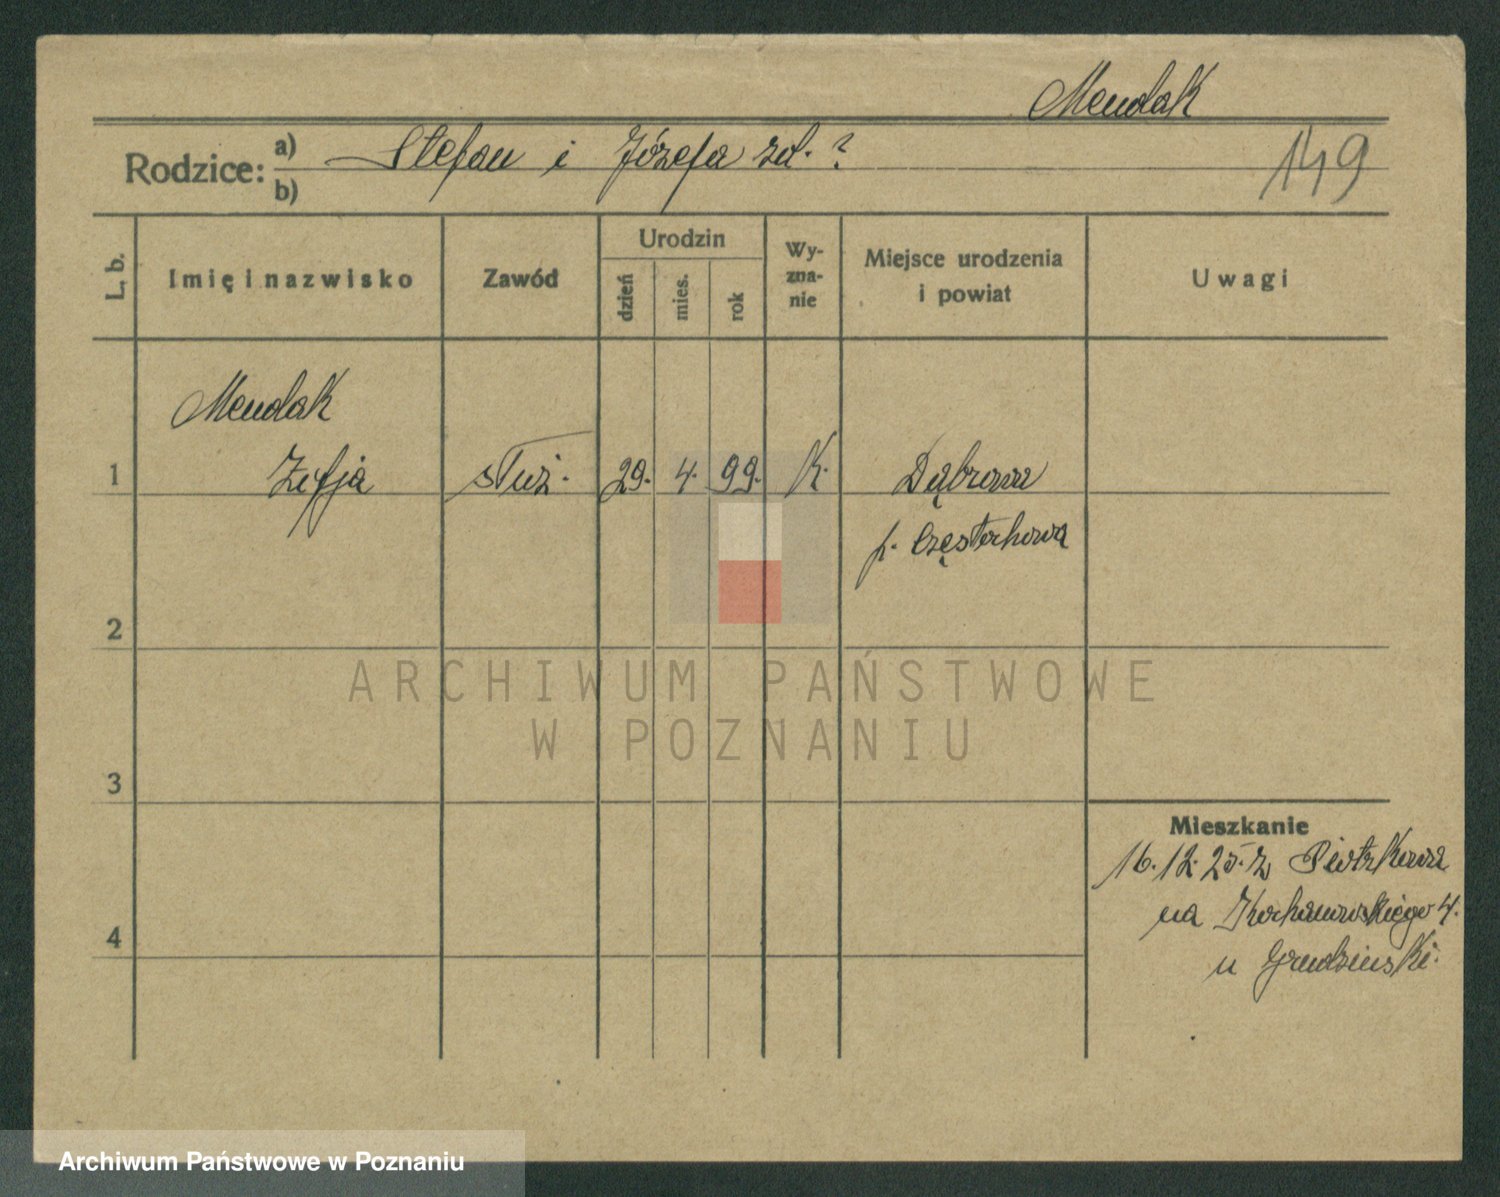 Mendak
Rodzice: a) Stefan i Józefa zd. ?
b)
149
L. b.
Imię i nazwisko
Zawód
Urodzin
dzień
mies.
rok
Wy-
zna-
nie
Miejsce urodzenia
i powiat
Uwagi
Mendak
1 Zofja służ. 29. 4. 99. K. Dąbrowa
p. Częstochowa
2
3
4
Mieszkanie
16.12.25. z Piotrkowa
na Kochanowskiego 4.
u Grudzinski.
ARCHIWUM PAŃSTWOWE
W POZNANIU
Archiwum Państwowe w Poznaniu